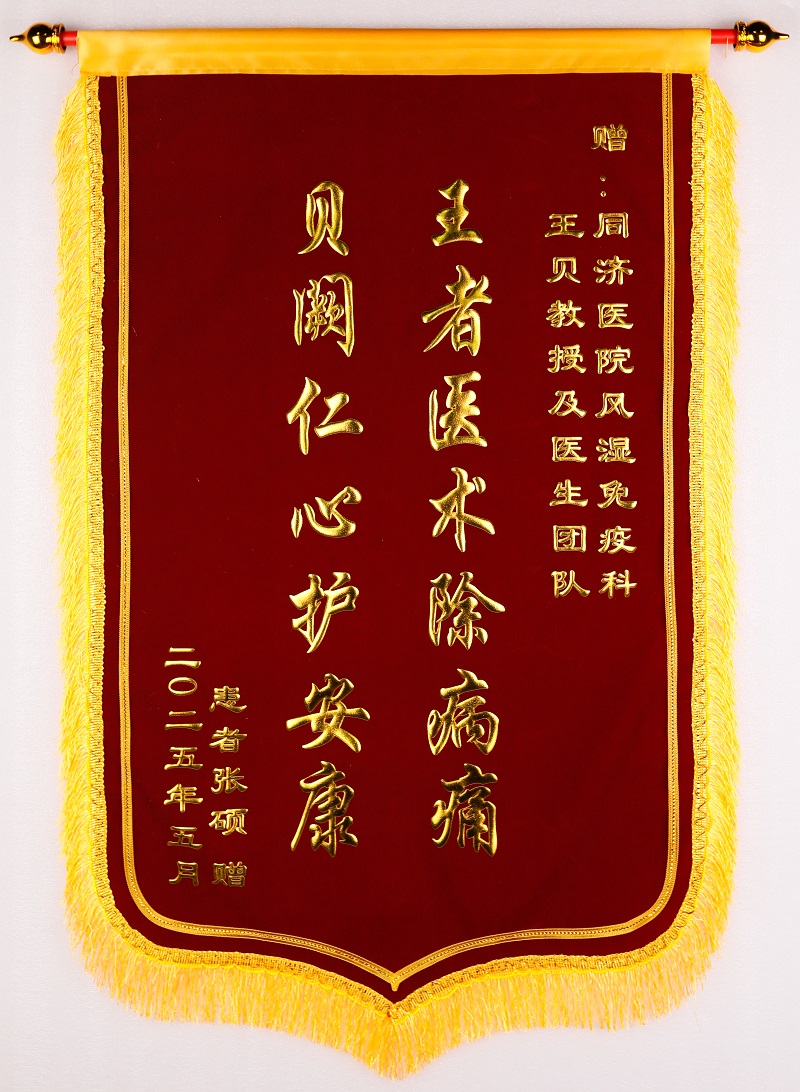 赠：同济医院风湿免疫科
王贝教授及医生团队
王者医术除病痛
贝阙仁心护安康
患者张硕 赠
二〇二五年五月